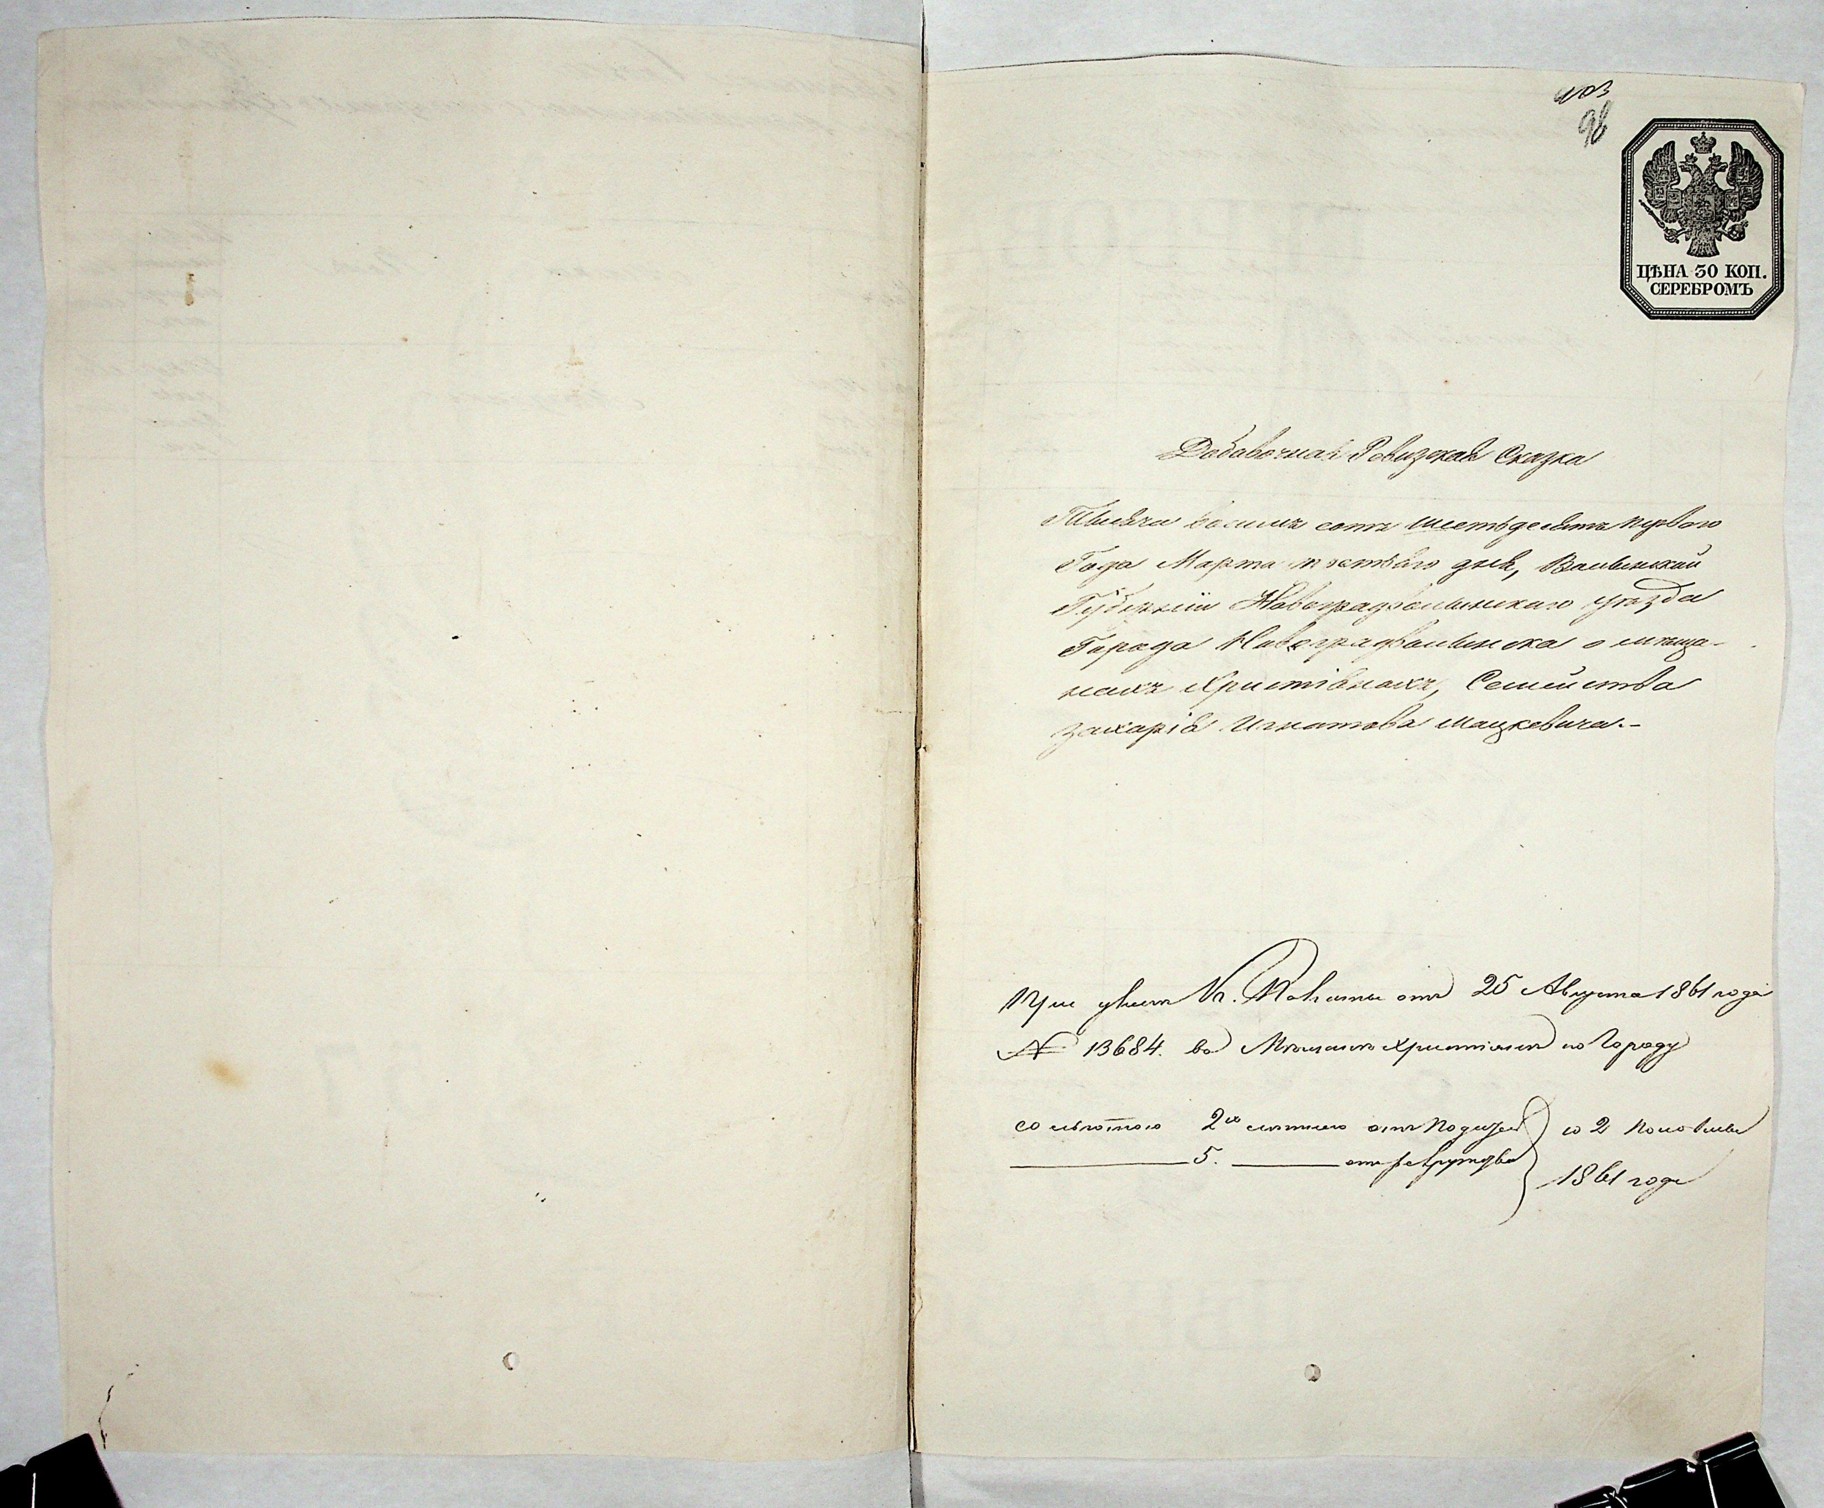 103
98
ЦѢНА 30 КОП.
СЕРЕБРОМЪ
Добавочная Ревизская Сказка
Тысяча восимъ сотъ шестьдесятъ перваго
Года Марта дня, Волынской
Губерніи Новоградволынскаго уѣзда
Города Новоградволынска о мѣща-
нахъ Христіянахъ, Семейства
Захарія Игнатова Мацкевича.-
При указѣ К. Палаты отъ 25 Августа 1861 года
№ 13684. въ Мѣщане Христіяне по Городу
со льготою 2хъ лѣтнею отъ Податей по 2 половины
5. отъ рекрутства
1861 года